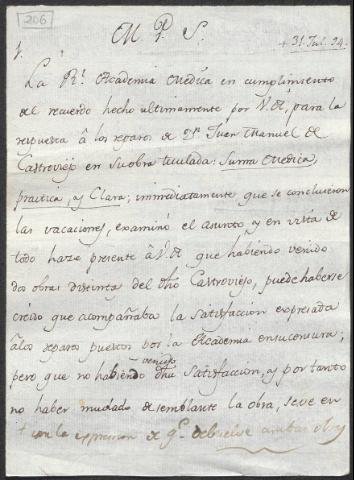 206
M. P. S.
+ 31. Jul. 94.
La Rl. Academia Medica en cumplimiento
del recuerdo hecho ultimamente por V.A, para la
respuesta â los reparos de Dn. Juan Manuel de
Castroviejo en su obra titulada: Suma Medica,
practica, y Clara; immediatamente que se concluieron
las vacaciones, examinó el asunto, y en vista de
todo haze presente â V.A que habiendo venido
dos obras distintas del dho Castroviejo, puede haberse
creido que acompañaba la Satisfaccion expresada
âlos reparos puestos por la Academia en su censura;
pero que no habiendo venido dha Satisfaccion, y por tanto
no haber mudado de semblante la obra, se ve en
+ con la expresion de qe. debuelve ambas obras